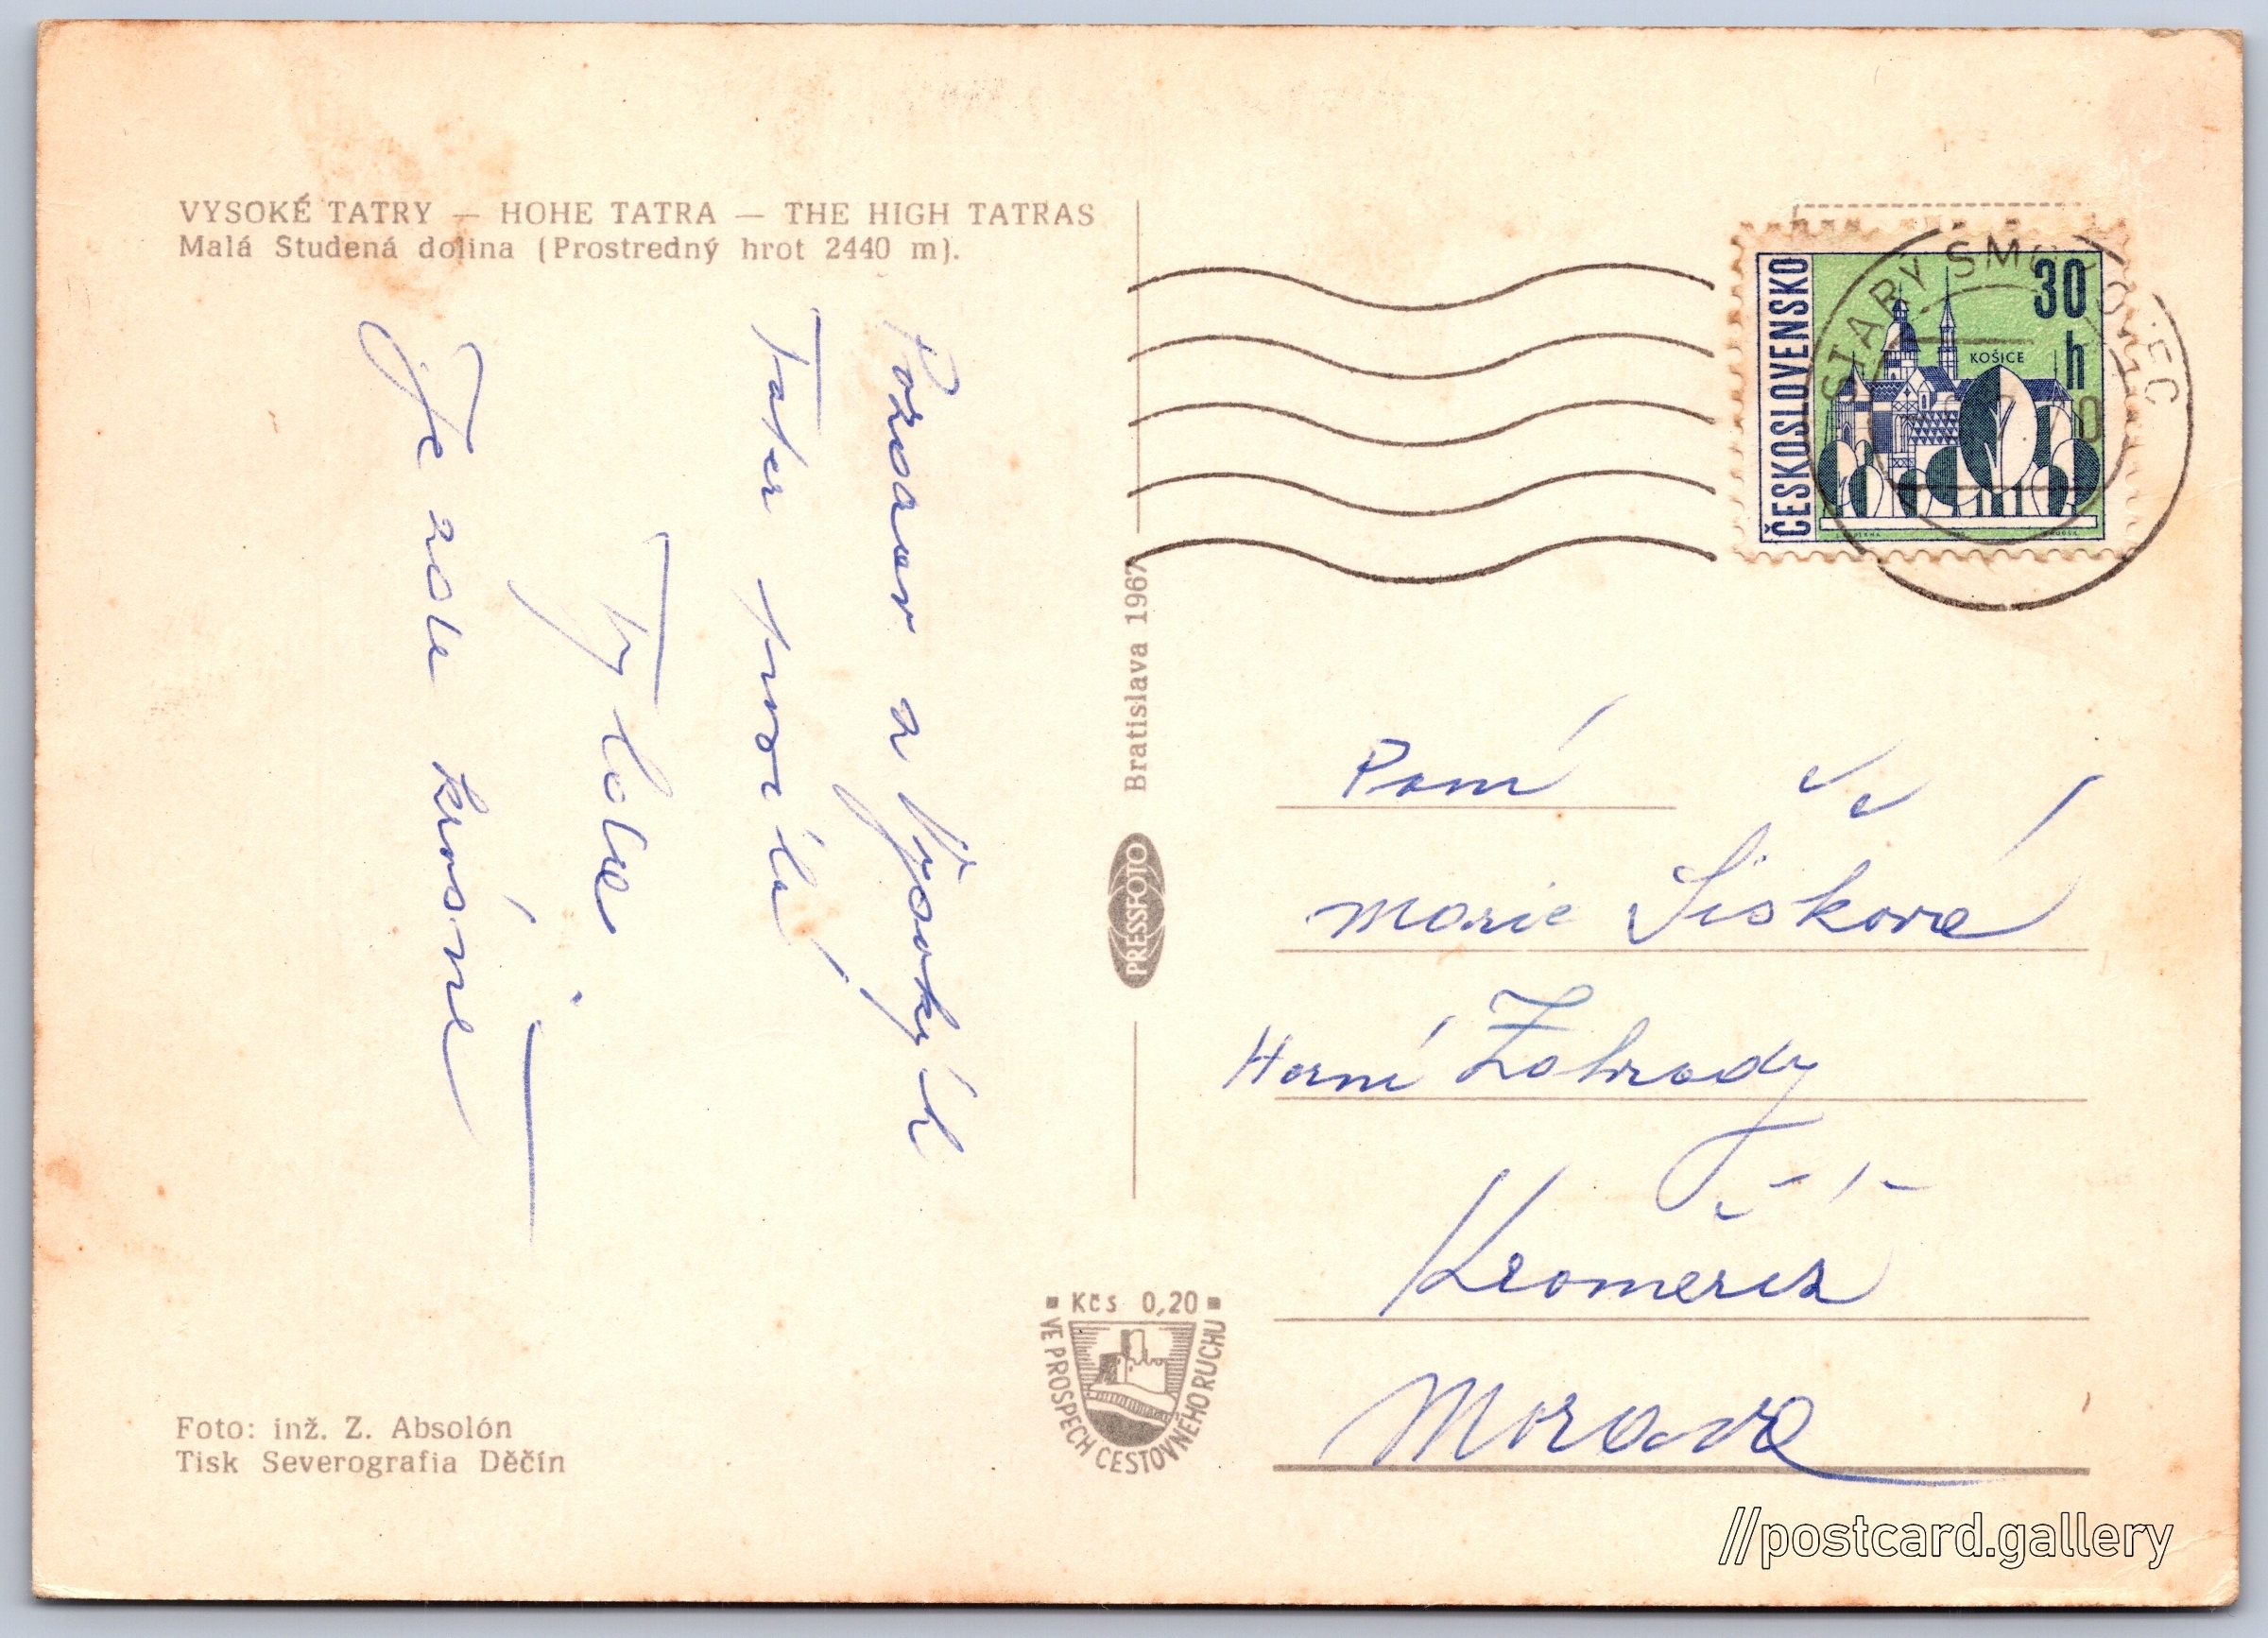 VYSOKÉ TATRY — HOHE TATRA — THE HIGH TATRAS
Malá Studená dolina (Prostredný hrot 2440 m).
Pozdrav z Vysokých
Tater posílá
Je zde krásně
Foto: inž. Z. Absolón
Tisk Severografia Děčín
Bratislava 1967
PRESSFOTO
Kčs 0,20
VE PROSPĚCH CESTOVNÉHO RUCHU
ČESKOSLOVENSKO
30 h
KOŠICE
STARÝ SMOKOVEC
Paní
Marie Šišková
Horní Zahrady
Kroměříž
Morava
//postcard.gallery